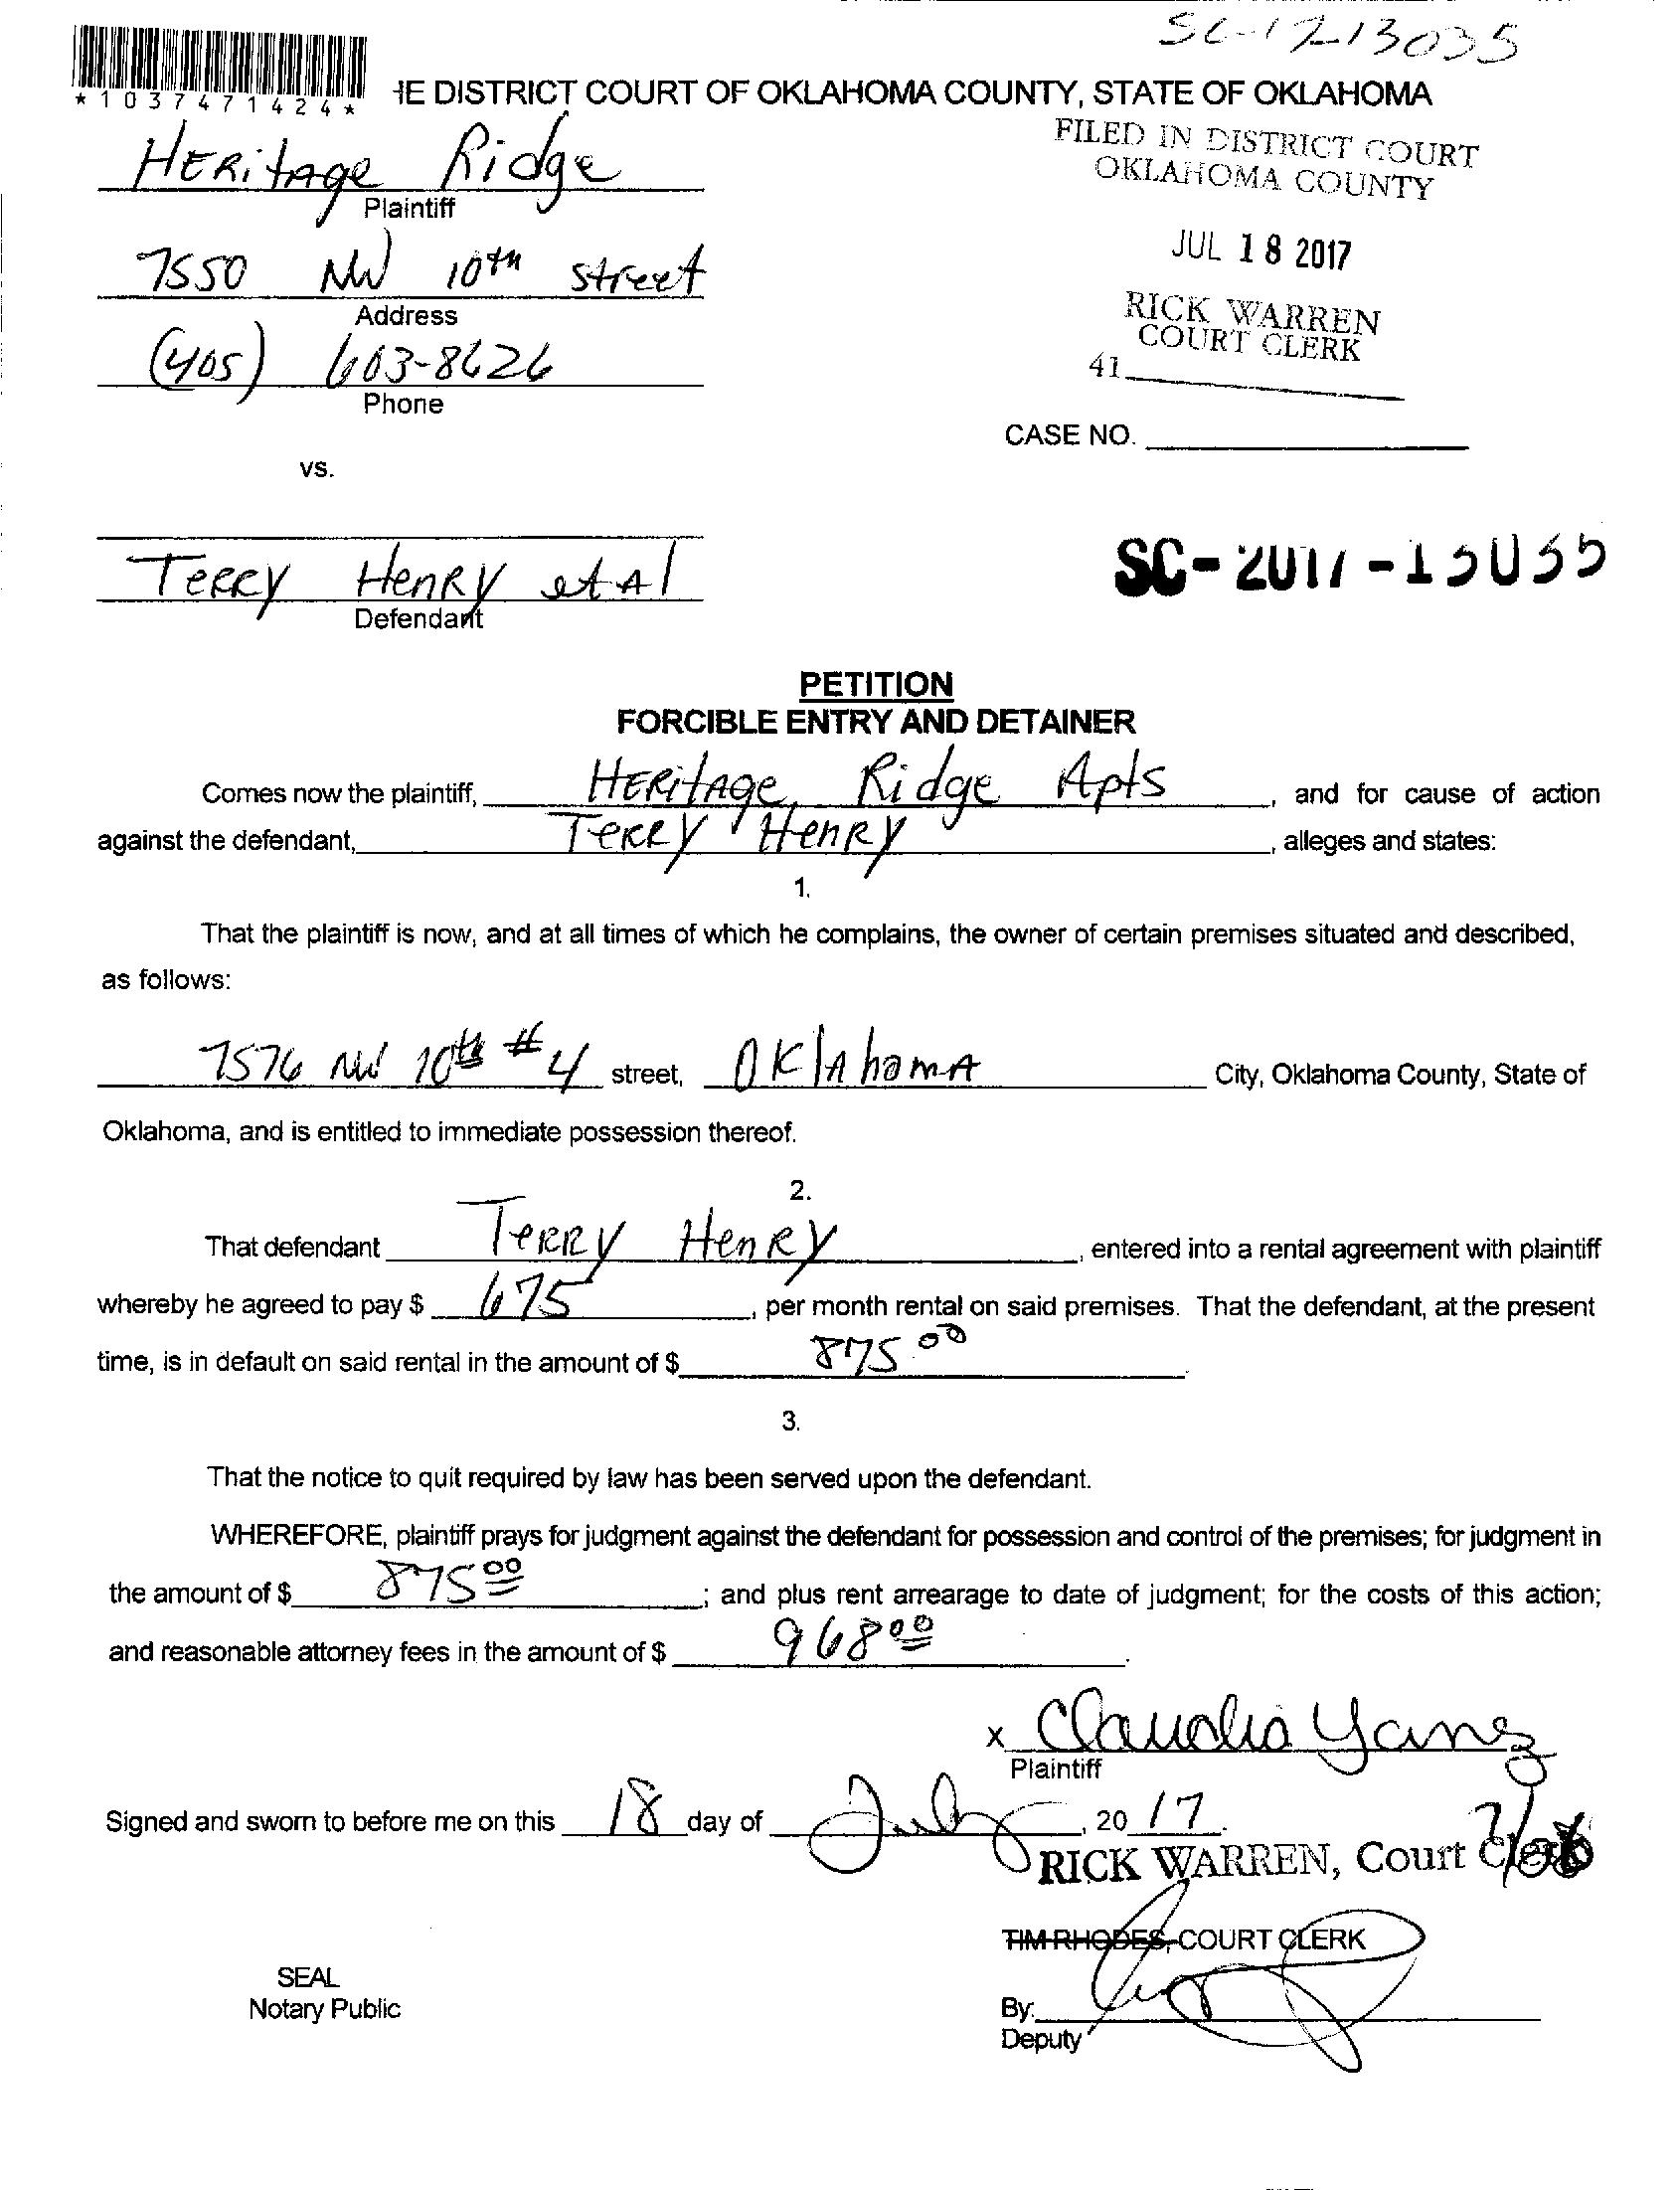 SC-1713035
*1037471424*
HE DISTRICT COURT OF OKLAHOMA COUNTY, STATE OF OKLAHOMA
FILED IN DISTRICT COURT
OKLAHOMA COUNTY
HERitAge Ridge
Plaintiff
JUL 18 2017
7550 NW 10th street
Address
RICK WARREN
COURT CLERK
(405) 603-8626
Phone
41
CASE NO.
vs.
TERRY HenRy et Al
Defendant
SC-2017-13035
PETITION
FORCIBLE ENTRY AND DETAINER
Comes now the plaintiff, HERitAge Ridge Apts, and for cause of action
against the defendant, TeRRy HenRy, alleges and states:
1.
That the plaintiff is now, and at all times of which he complains, the owner of certain premises situated and described,
as follows:
7576 NW 10th #4 street, OklAhomA City, Oklahoma County, State of
Oklahoma, and is entitled to immediate possession thereof.
2.
That defendant TeRRy HenRy, entered into a rental agreement with plaintiff
whereby he agreed to pay $ 675, per month rental on said premises. That the defendant, at the present
time, is in default on said rental in the amount of $ 875.00.
3.
That the notice to quit required by law has been served upon the defendant.
WHEREFORE, plaintiff prays for judgment against the defendant for possession and control of the premises; for judgment in
the amount of $ 875 00; and plus rent arrearage to date of judgment; for the costs of this action;
and reasonable attorney fees in the amount of $ 968 00.
x Claudia Yanez
Plaintiff
Signed and sworn to before me on this 18 day of July, 2017.
RICK WARREN, Court Clerk
TIM RHODES, COURT CLERK
SEAL
Notary Public
By:
Deputy